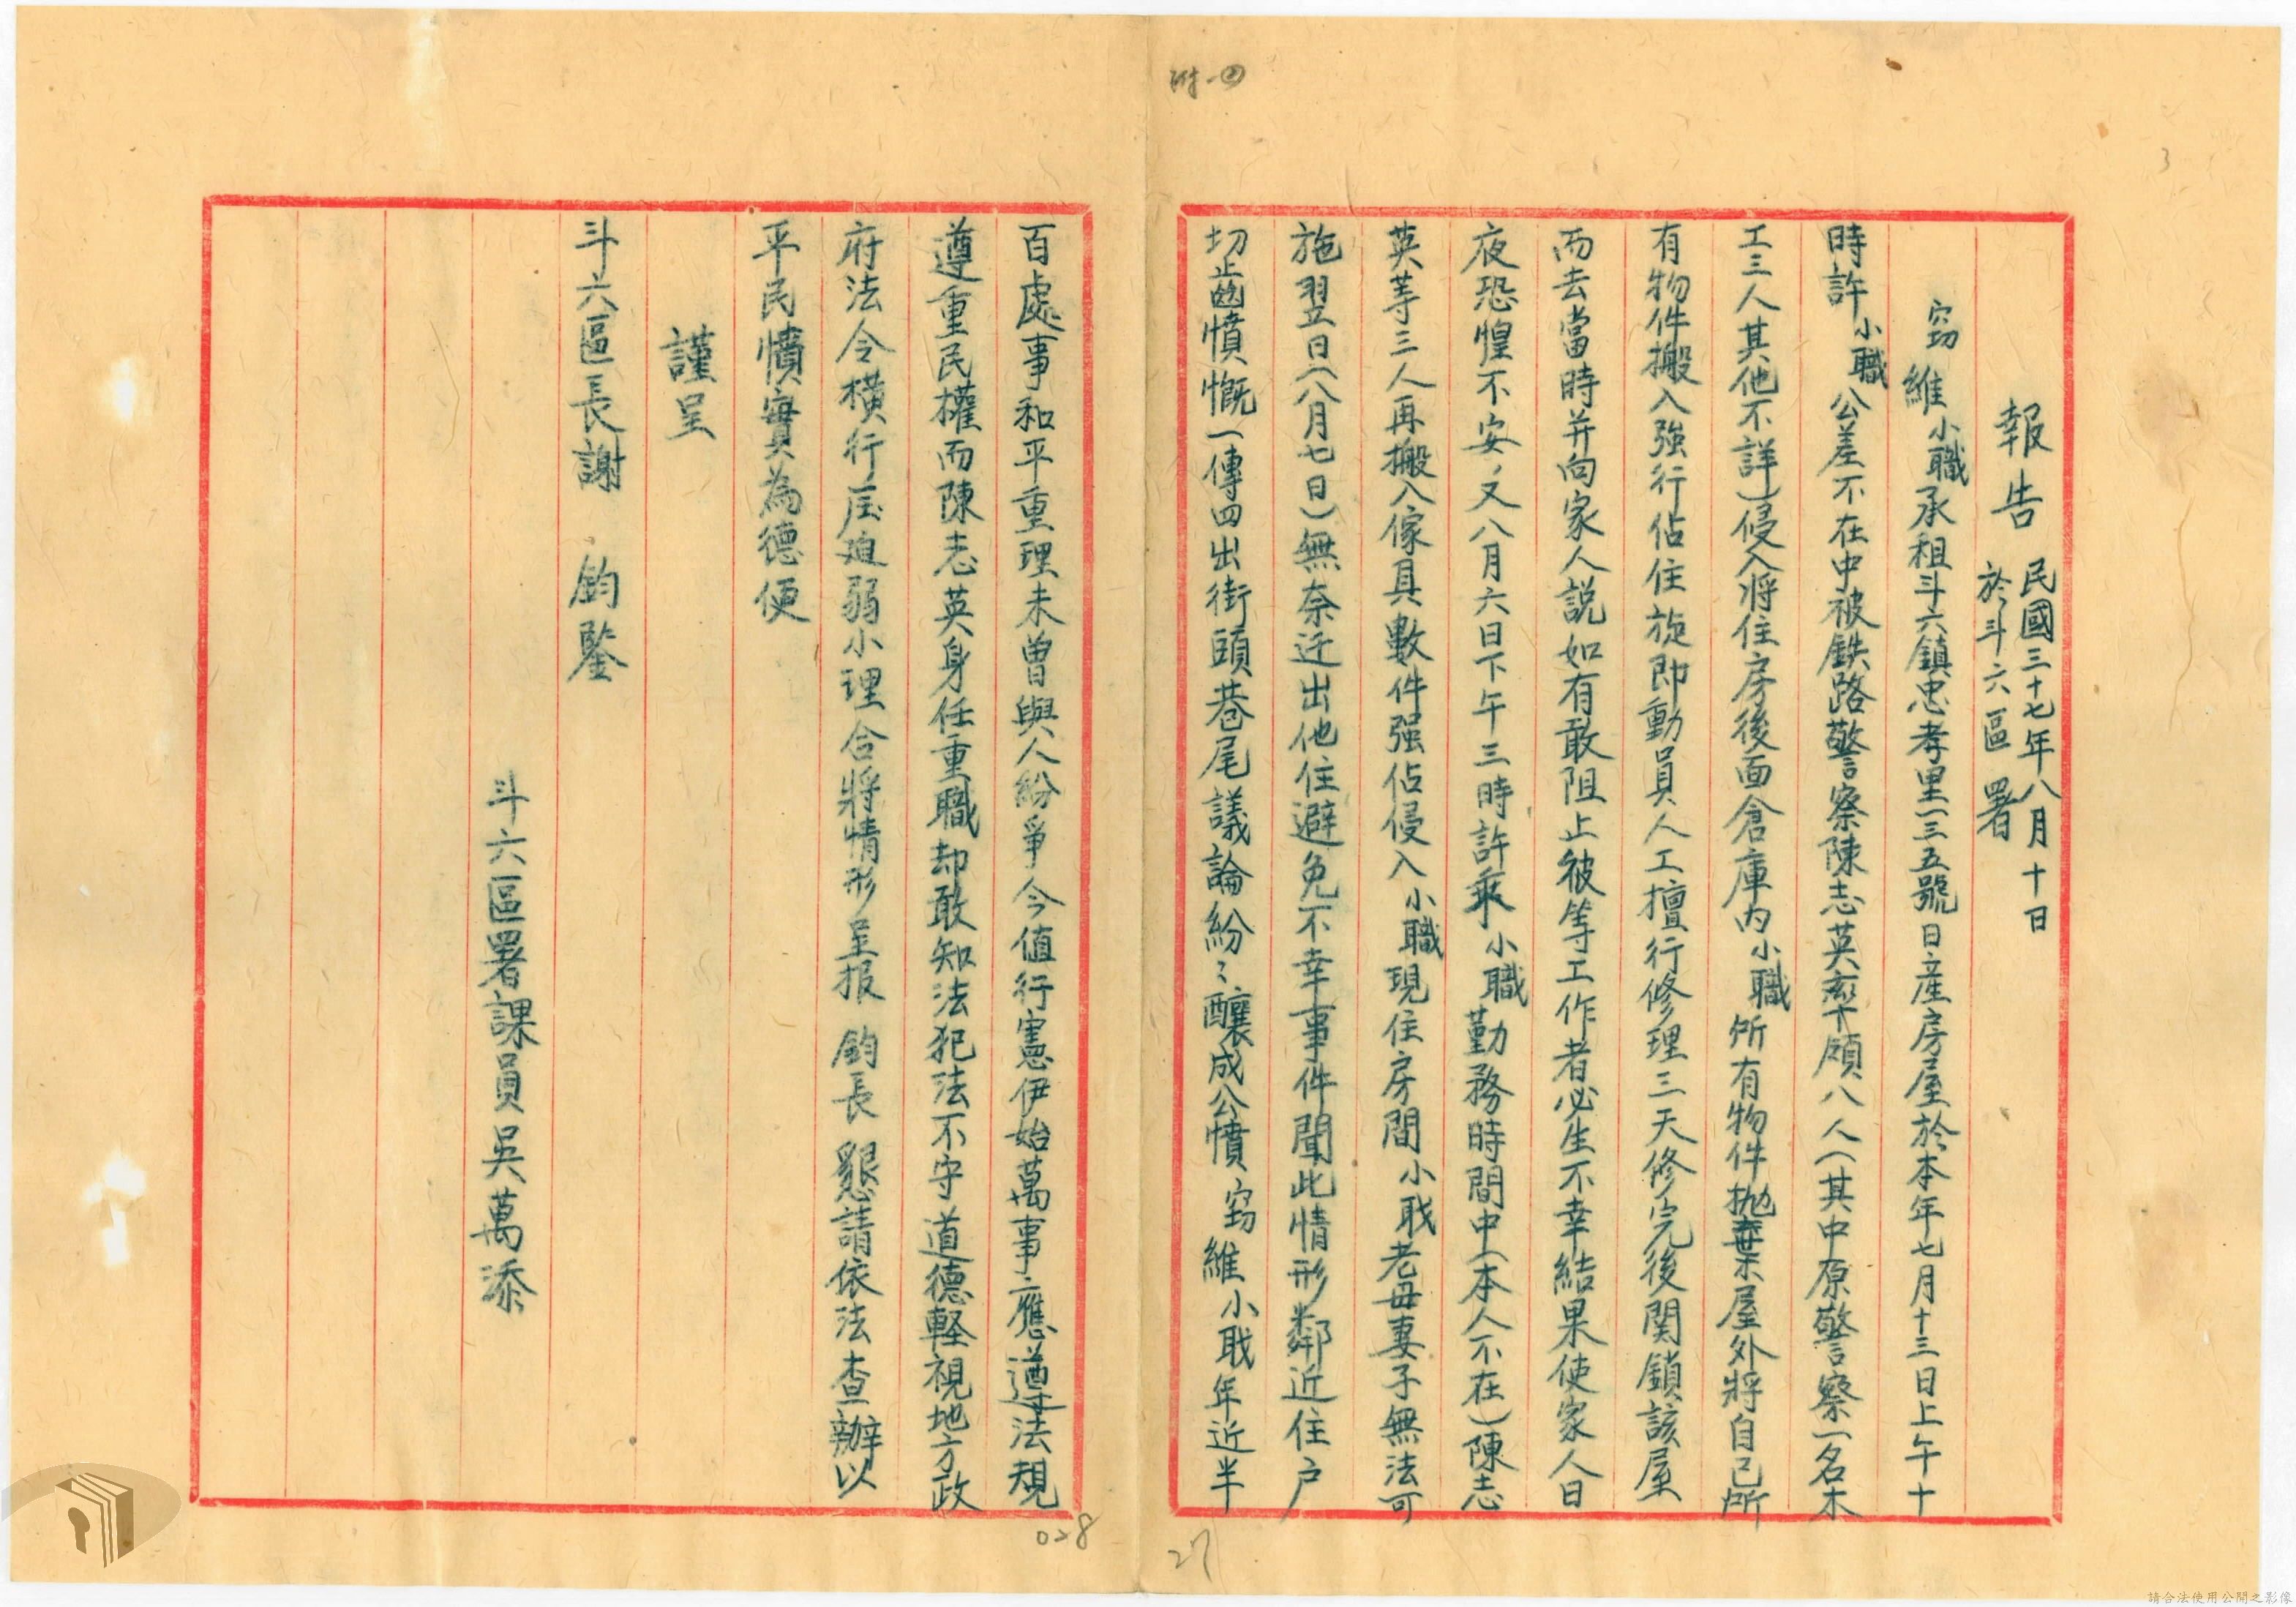 附一④
3
報告 民國三十七年八月十日
於斗六區署
竊維小職承租斗六鎮忠孝里一三五號日產房屋於本年七月十三日上午十
時許小職公差不在中被鉄路警察陳志英率領八人(其中原警察一名木
工三人其他不詳)侵入將住房後面倉庫內小職所有物件拋棄屋外將自己所
有物件搬入強行佔住旋即動員人工擅行修理三天修完後関鎖該屋
而去當時并向家人説如有敢阻止彼等工作者必生不幸結果使家人日
夜恐惶不安、又八月六日下午三時許乘小職勤務時間中(本人不在)陳志
英等三人再搬入傢具數件强佔侵入小職現住房間小耺老母妻子無法可
施翌日(八月七日)無奈迁出他住避免不幸事件聞此情形鄰近住户
切齒憤慨一傳四出街頭巷尾議論紛〻釀成公憤竊維小耺年近半
百處事和平重理未曾與人紛爭今値行憲伊始萬事應遵法規
遵重民權而陳志英身任重職却敢知法犯法不守道德軽視地方政
府法令橫行压迫弱小理合將情形呈报 鈞長懇請依法查辦以
平民憤實為德便
謹呈
斗六區長謝 鈞鑒
斗六區署課員吳萬添
028
27
請合法使用公開之影像